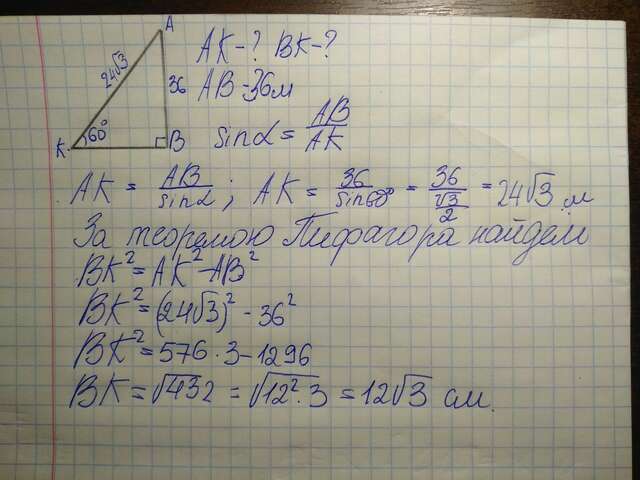 A
24√3
36
K
60°
B
AK-? BK-?
AB=36м
sinα = AB/AK
AK = AB/sinα ; AK = 36/sin60° = 36/(√3/2) = 24√3 м
За теоремою Пифагора найдем
BK² = AK² - AB²
BK² = (24√3)² - 36²
BK² = 576 · 3 - 1296
BK = √432 = √12² · 3 = 12√3 см.